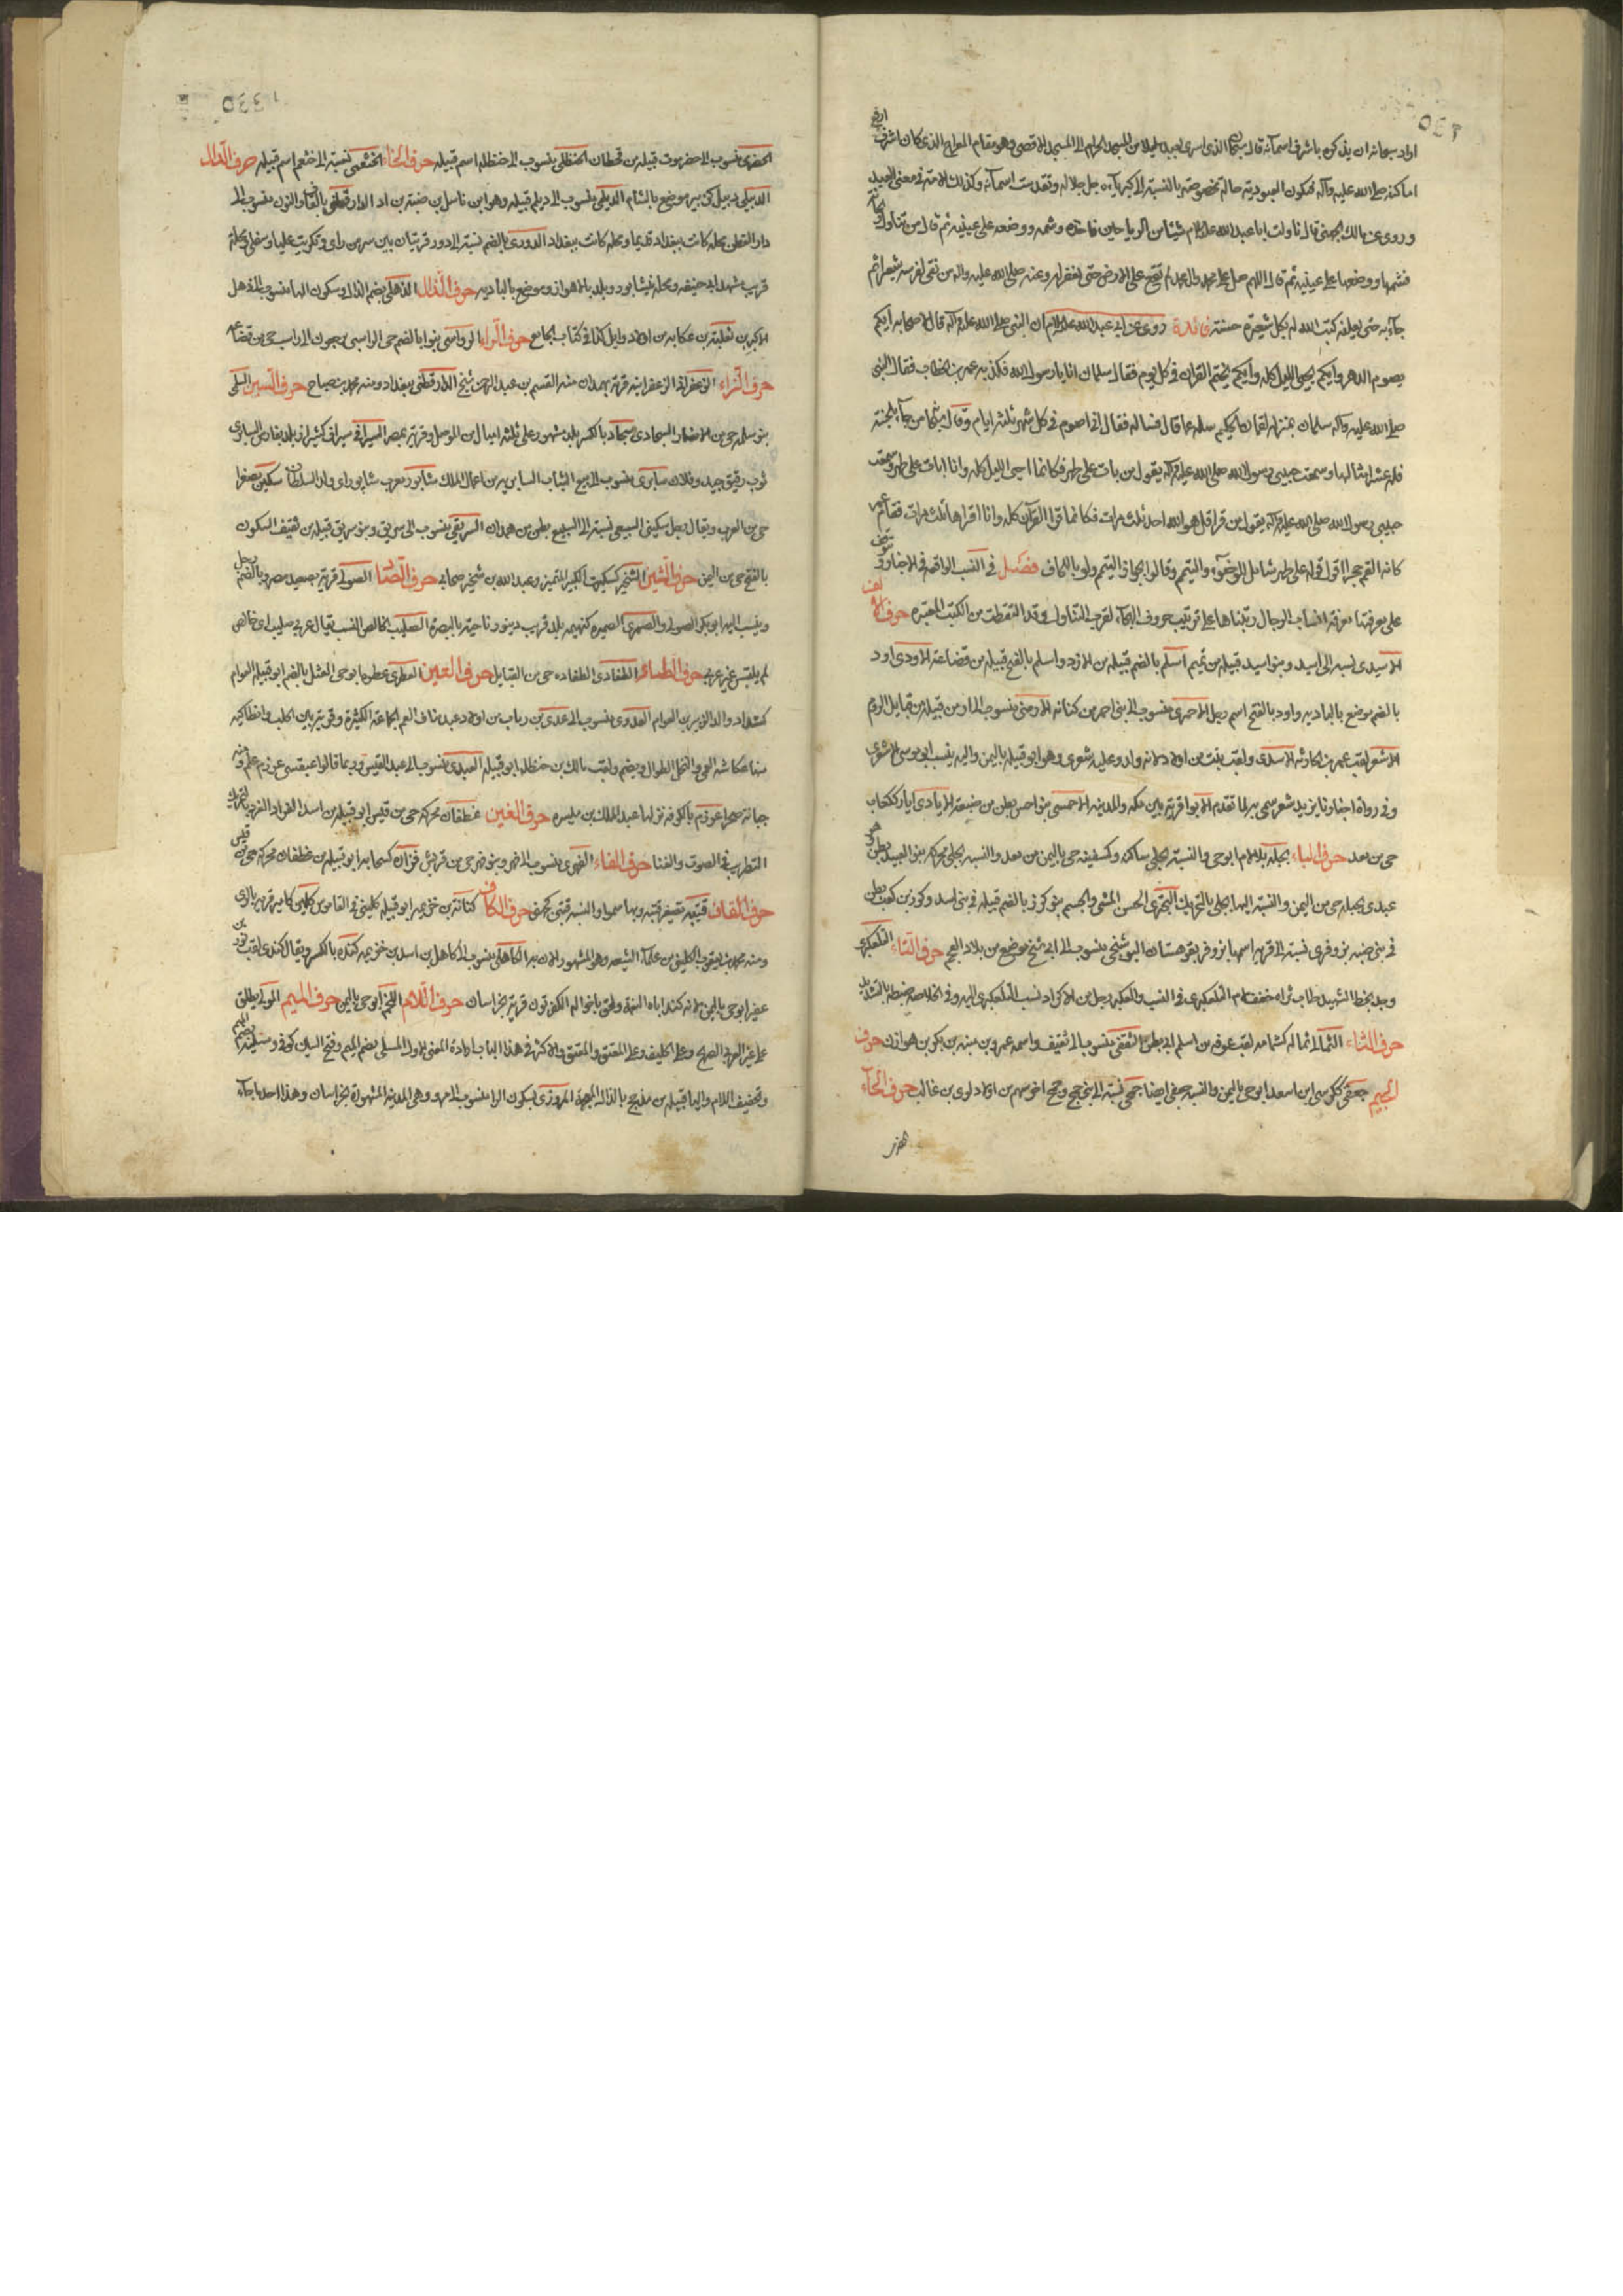 اراد سبحانه ان يذكره باشرف اسمآئه قال سبحان الذى اسرى بعبده ليلا من المسجد الحرام الى المسجد الاقصى وهو مقام المعراج الذى كان اشرف
اماكنه صلى الله عليه وآله فتكون العبودية حالة مخصوصة بالنسبة الى كبريآءه جل جلاله وتقدست اسمآئه وكذلك الامة فى معنى العبيد
وروى عن مالك الجهنى قال ناولت ابا عبد الله عليه السلام شيئا من الرياحين فاخذه وشمه ووضعه على عينيه ثم قال من تناول ريحانة
فشمها ووضعها على عينيه ثم قال اللهم صل على محمد وال محمد لم تقع على الارض حتى يغفر له وعنه صلى الله عليه واله من نقى لفرسه شعيرا ثم
جآء به حتى يعلفه كتب الله له بكل شعيرة حسنة فائدة روى عن ابى عبد الله عليه السلام ان النبى صلى الله عليه وآله قال لاصحابه ايكم
يصوم الدهر وايكم يحيى الليل كله وايكم يختم القران فى كل يوم فقال سلمان انا يا رسول الله فكذبه عمر بن الخطاب فقال النبى
صلى الله عليه وآله سلمان بمنزلة لقمان الحكيم سله عما قال فساله فقال انى اصوم فى كل شهر ثلثة ايام وقال من جآء بالحسنة
فله عشر امثالها وسمعت حبيبى رسول الله صلى الله عليه وآله يقول من بات على طهر فكانما احيى الليل كله وانا ابات على طهر وسمعت
حبيبى رسول الله صلى الله عليه وآله يقول من قرا قل هو الله احد ثلث مرات فكانما قرا القرآن كله وانا اقراها ثلث مرات فقام عمر
كانه القم حجرا اقول قوله على طهر شامل للوضوء والتيمم وقالوا بجواز التيمم ولو باللحاف فصل فى النسب الواقعة فى الاخبار وتوقف
على معرفتها معرفة انساب الرجال رتبناها على ترتيب حروف الهجآء لقرب التناول وقد التقطت من الكتب المعتبرة حرف الالف
الاسيدى نسبه الى اسيد وبنو اسيد قبيلة من تميم اسلم بالضم قبيلة من الازد واسلم بالفتح قبيلة من قضاعة الاودى اود
بالضم موضع بالبادية واود بالفتح اسم رجل الاحمرى منسوب الى بنى احمر من كنانة الارمنى منسوب الى ارمن قبيلة من قبايل الروم
الاشعر لقب عمر بن الحارثة الاسدى ولقب نبت بن ادد لانه ولد وعليه شعر وهو ابو قبيلة باليمن واليه ينسب ابو موسى الاشعرى
وفى رواة اخبارنا يزيد شعر سمى به لما تقدم الابوا قرية بين مكة والمدينة الاحمسى بنو احمس بطن من ضبيعة الايادى اياد ككتاب
حى من معد حرف الباء بجلة بلا لام ابو حى والنسبة بجلى ساكنة وكسفينة حى باليمن من معد والنسبة بجلى محركة بنو العبيد بطن وهو
عبدى بجيلة حى من اليمن والنسبة اليها بجلى بالتحريك البخترى الحسن المشى والجسم بنو كوز بالضم قبيلة فى بنى اسد وكوز بن كعب بطن
فى بنى ضبة بزوفرى نسبة الى قرية اسمها بزوفر بقوهستان البوشنجى منسوب الى ابى شنج موضع من بلاد العجم حرف التاء التلعكبرى
وجد بخط الشهيد طاب ثراه خفف لام التلعكبرى فى النسب والعكبر رجل من الاكراد نسب التلعكبرى اليه وفى الخلاصة ضبطه بالتشديد
حرف الثاء الثمالى ثماله كثمامه لقب عوف بن اسلم ابى بطن الثقفى منسوب الى ثقيف واسمه عمرو بن منبه بن بكر بن هوازن حرف
الجيم جعفى ككرسى ابن اسعد ابو حى باليمن والنسبة جعفى ايضا جمحى نسبة الى بنى جمح وجمح اخو سهم من اولاد لوى بن غالب حرف الحآء
الحضرمى منسوب الى حضرموت قبيلة بن قحطان الحنظلى منسوب الى حنظلة اسم قبيلة حرف الخاء الخثعمى نسبة الى خثعم اسم قبيلة حرف الدال
الدبيلى دبيل كزبير موضع بالشام الديلمى منسوب الى ديلم قبيلة وهو ابن ناسل بن ضبة بن اد الدارقطنى بالقاف والنون منسوب الى
دار القطن محلة كانت ببغداد قديما ومحلة كانت ببغداد الدورى بالضم نسبة الى دور قريتان بين سر من راى وتكريت عليا وسفلى ومحلة
قريب شهد ابى حنيفة ومحلة نيشابور وبلد بالاهواز وموضع بالبادية حرف الذال الذهلى بضم الذال وسكون الها منسوب الى ذهل
الاكبر بن ثعلبة بن عكابة من اولاد وايل كذا فى كتاب الجامع حرف الراء الرواسى بنو ابا لضم حى الراسبى الى راسب حى من قضاعة
حرف الزاء الزعفرانى الزعفرانية قرية بهمدان منه القسم بن عبد الرحمن شيخ الدارقطنى ببغداد ومنه محمد بن صباح حرف السين السلمى
بنو سلمة حى من الانصار السنجارى سنجار بالكسر بلد مشهور على ثلثة ايام من الموصل وقرية بمصر السيرافى سيراف كشيراز بلد بفارس السابرى
ثوب رقيق جيد وفلان سابرى منسوب الى بيع الثياب السابرية من اعمال الملك شابور معرب شاپور اى ولد السلطان سكين مصغرا
حى من العرب ويقال رجل سكينى السبيعى نسبة الى السبيع بطن من همدان السريقى منسوب الى سويق وبنو سريق قبيلة من ثقيف السكون
بالفتح حى من اليمن حرف الشين الشخير كسكيت الكبير المتميز وعبد الله بن شخير صحابى حرف الصاد الصولى قرية بصعيد مصر وبالضم رجل
وينسب اليه ابو بكر الصولى والصيمرى الصيمره كهينمه بلد قريب دينور ناحية بالبصرة الصليب الخالص النسب يقال عربى صليب اى خالص
لم يلتبس غير عربى حرف الطاء الطفاوى الطفاوة حى من القبايل حرف العين
كشداد والد الزبير بن العوام العدوى منسوب الى عدى بن رباب بن اولاد عبد مناف العم الجماعة الكثيرة وقرية بين حلب وانطاكية
منها عكاشة العمى والنخل الطوال ويضم ولقب مالك بن حنظلة ابو قبيلة العبدى منسوب الى عبد القيس وربما قالوا عبقسى
جبانة عرزم بالكوفة نزلها عبد الملك بن ميسره حرف الغين غطفان محركة حى من قيس ابو قبيلة من اسد
التطريب فى الصوت والغنا حرف الفاء الفهرى منسوب الى فهر وبنو فهر حى من قريش فزارة كسحابة ابو قبيلة من غطفان محركة حى من قيس
حرف القاف قتيبة تصغير قتبه وبها سموا والنسبة قتبى كجهنى حرف الكاف كنانة بن خزيمة ابو قبيلة كلينى فى القاموس كلين كامير قرية بالرى
ومنه محمد بن يعقوب الكلينى من علمآء الشيعه وهو المشهور الان به الكاهلى منسوب الى كاهل بن اسد بن خزيمه كنده بالكسر ويقال كندى لقب ثور بن
عفير ابو حى باليمن لانه كند اباه النعمة ولحق باخواله الكفرتون قرية بخراسان حرف اللام اللخم ابو حى باليمن حرف الميم المولى يطلق
على غير العربى الصريح وعلى الحليف وعلى المعتق والمعتق والاكثر فى هذا الباب ارادة المعنى الاول المسلى بضم الميم وفتح السين كوفى ومسلية بضم الميم
وتخفيف اللام واليا قبيلة من مذحج بالذال المعجمة المروزى بسكون الرا منسوب الى مرو وهى المدينة المشهورة بخراسان وهذا احد ما جآء